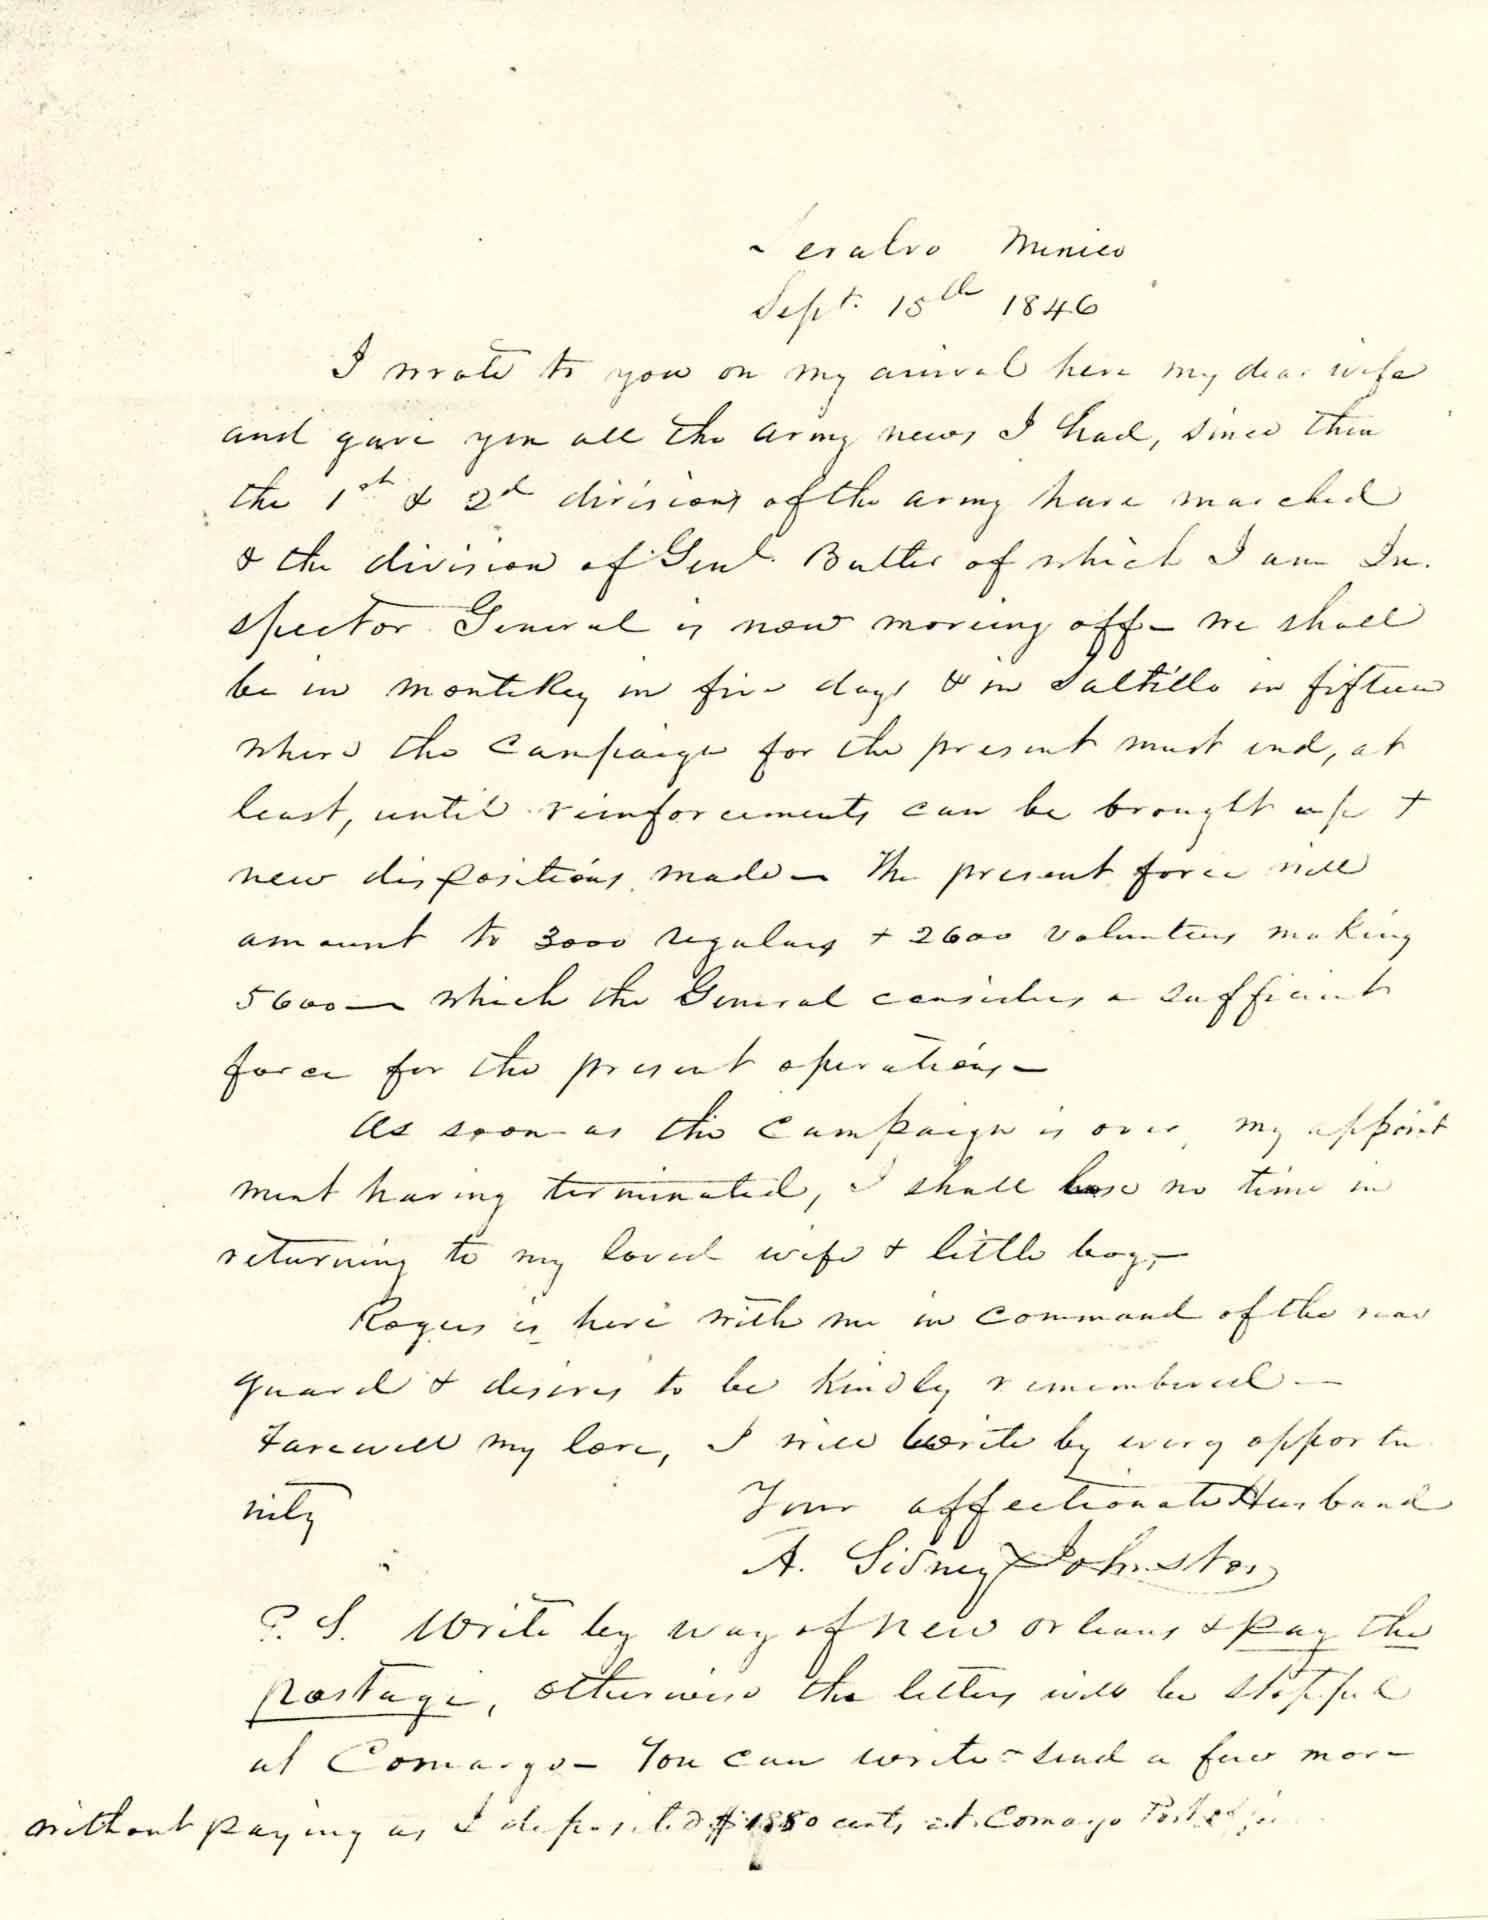 Seralvo Mexico
Sept. 15th 1846
I wrote to you on my arrival here my dear wife
and gave you all the army news I had, since then
the 1st & 2d divisions of the army have marched
& the division of Genl. Butler of which I am In.
spector General is now moving off – we shall
be in monteRey in five days & in Saltillo in fifteen
where the campaign for the present must end, at
least, until reinforcements can be brought up +
new dispositions made – The present force will
amount to 3000 regulars + 2600 volunteers making
5600 – which the General considers a sufficient
force for the present operations –
As soon as the campaign is over, my appoint
ment having terminated, I shall lose no time in
returning to my loved wife + little boy, –
Rogers is here with me in command of the rear
guard & desires to be kindly remembered –
Farewell my love, I will write by every opportu
nity
Your affectionate Husband
A. Sidney Johnston
P. S. Write by way of New Orleans & pay the
postage, otherwise the letters will be stopped
at Comargo – You can write – send a few more
without paying as I deposited $ cents at Comargo Post office